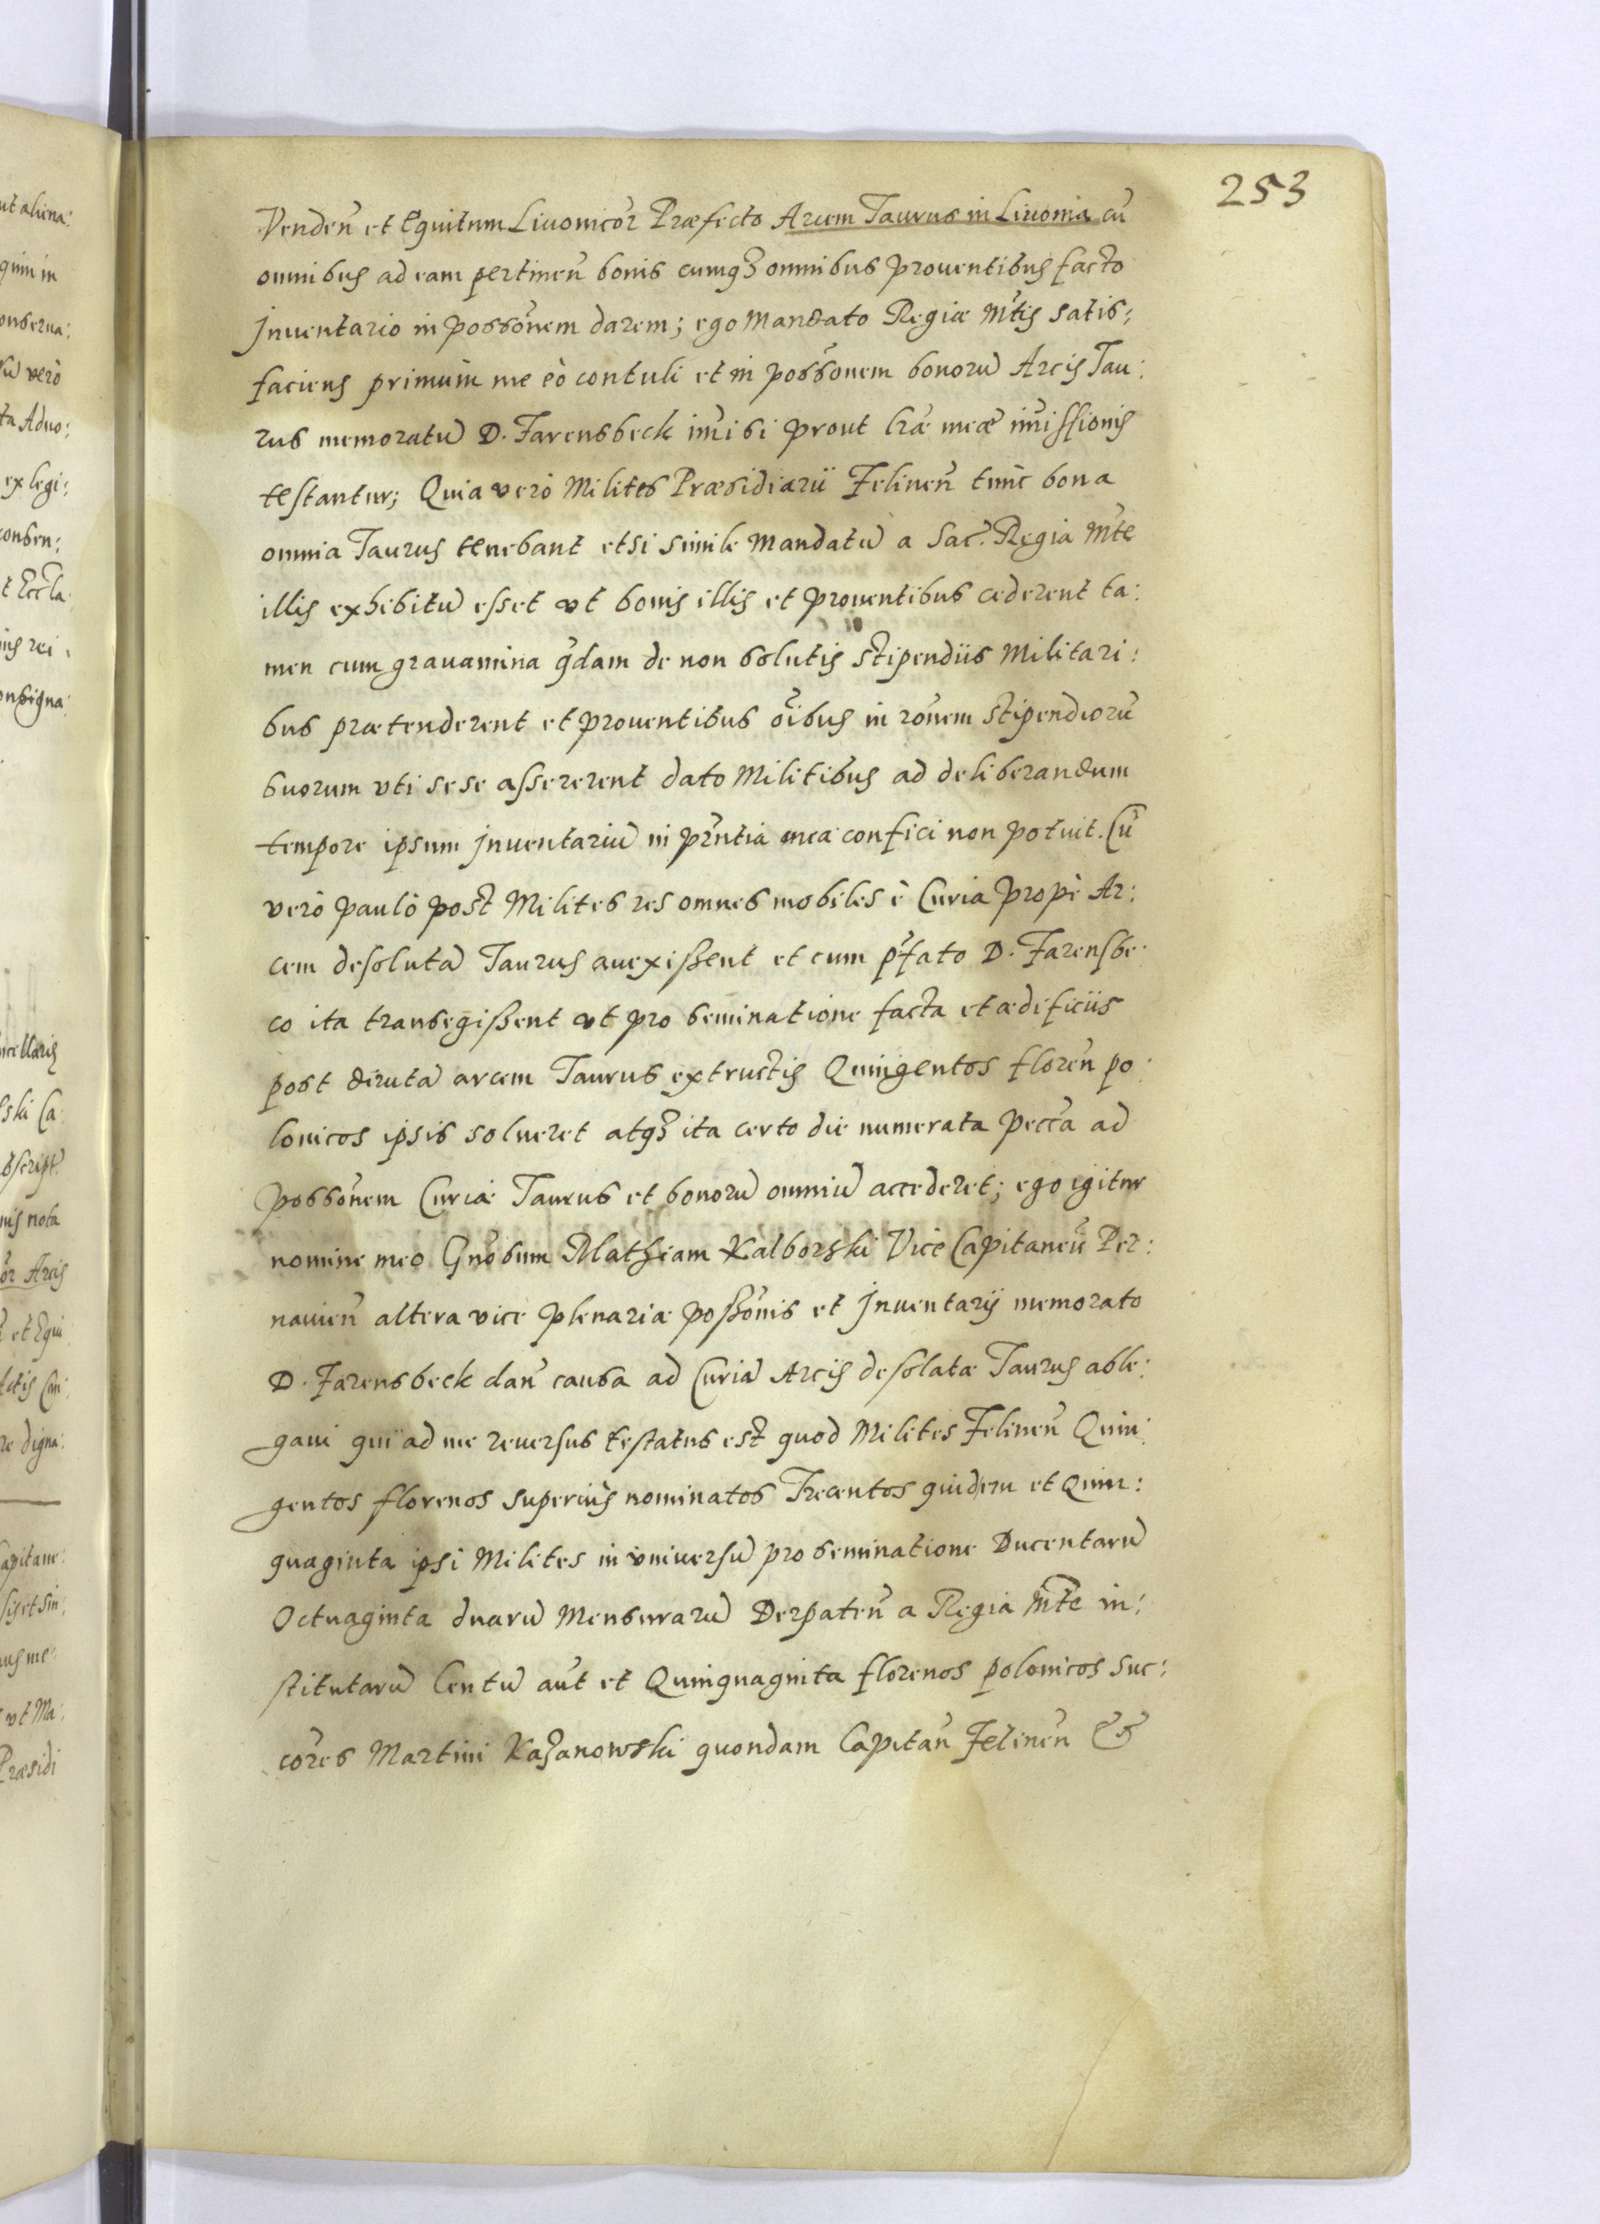 253
Venden̄ et Equitum Liuonicor̄ Præfecto Arcem Taurus in Liuonia cū
omnibus ad eam pertinen̄ bonis cumq3 omnibus prouentibus facto
Inuentario in possōnem darem; ego Mandato Regiæ Mtis satis:
faciens primùm me eò contuli et in possōnem bonorū Arcis Tau:
rus memoratū D. Farensbeck im̄isi prout lr̄æ meæ im̄issionis
testantur; Quia verò Milites Præsidiarii Felinen̄ tunc bona
omnia Taurus tenebant etsi simile Mandatū a Sac. Regia Mte
illis exhibitū esset vt bonis illis et prouentibus cederent ta:
men cum grauamina q̄dam de non solutis stipendiis Militari:
bus prætenderent et prouentibus oībus in rōnem stipendiorū
suorum vti sese assererent dato Militibus ad deliberandum
tempore ipsum Inuentariū in pr̄ntia mea confici non potuit. Cū
verò paulò post Milites res omnes mobiles è Curia propè Ar:
cem desolutā Taurus auexissent et cum p̄fato D. Farensbe:
co ita transegissent vt pro seminatione facta et ædificiis
post dirutā arcem Taurus extructis Quingentos floren̄ po:
lonicos ipsis solueret atq3 ita certo die numerata pecc̄a ad
possōnem Curiæ Taurus et bonorū omniū accederet; ego igitur
nomine meo Gnōsum Mathiam Kalborski Vice Capitaneū Per:
nauien̄ altera vice plenariæ possōnis et Inuentarij memorato
D. Farensbeck dan̄ causa ad Curiā Arcis desolatæ Taurus able:
gaui qui ad me reuersus testatus est quod Milites Felinen̄ Quin:
gentos florenos superiùs nominatos Trecentos quidem et Quin:
quaginta ipsi Milites in vniuersū pro seminatione Ducentarū
Octuaginta duarū Mensurarū Derpaten̄ a Regia Mte in:
stitutarū Centū aut̄ et Quinquaginta florenos polonicos suc:
cōres Martini Kazanowski quondam Capitan̄ Felinen̄ &